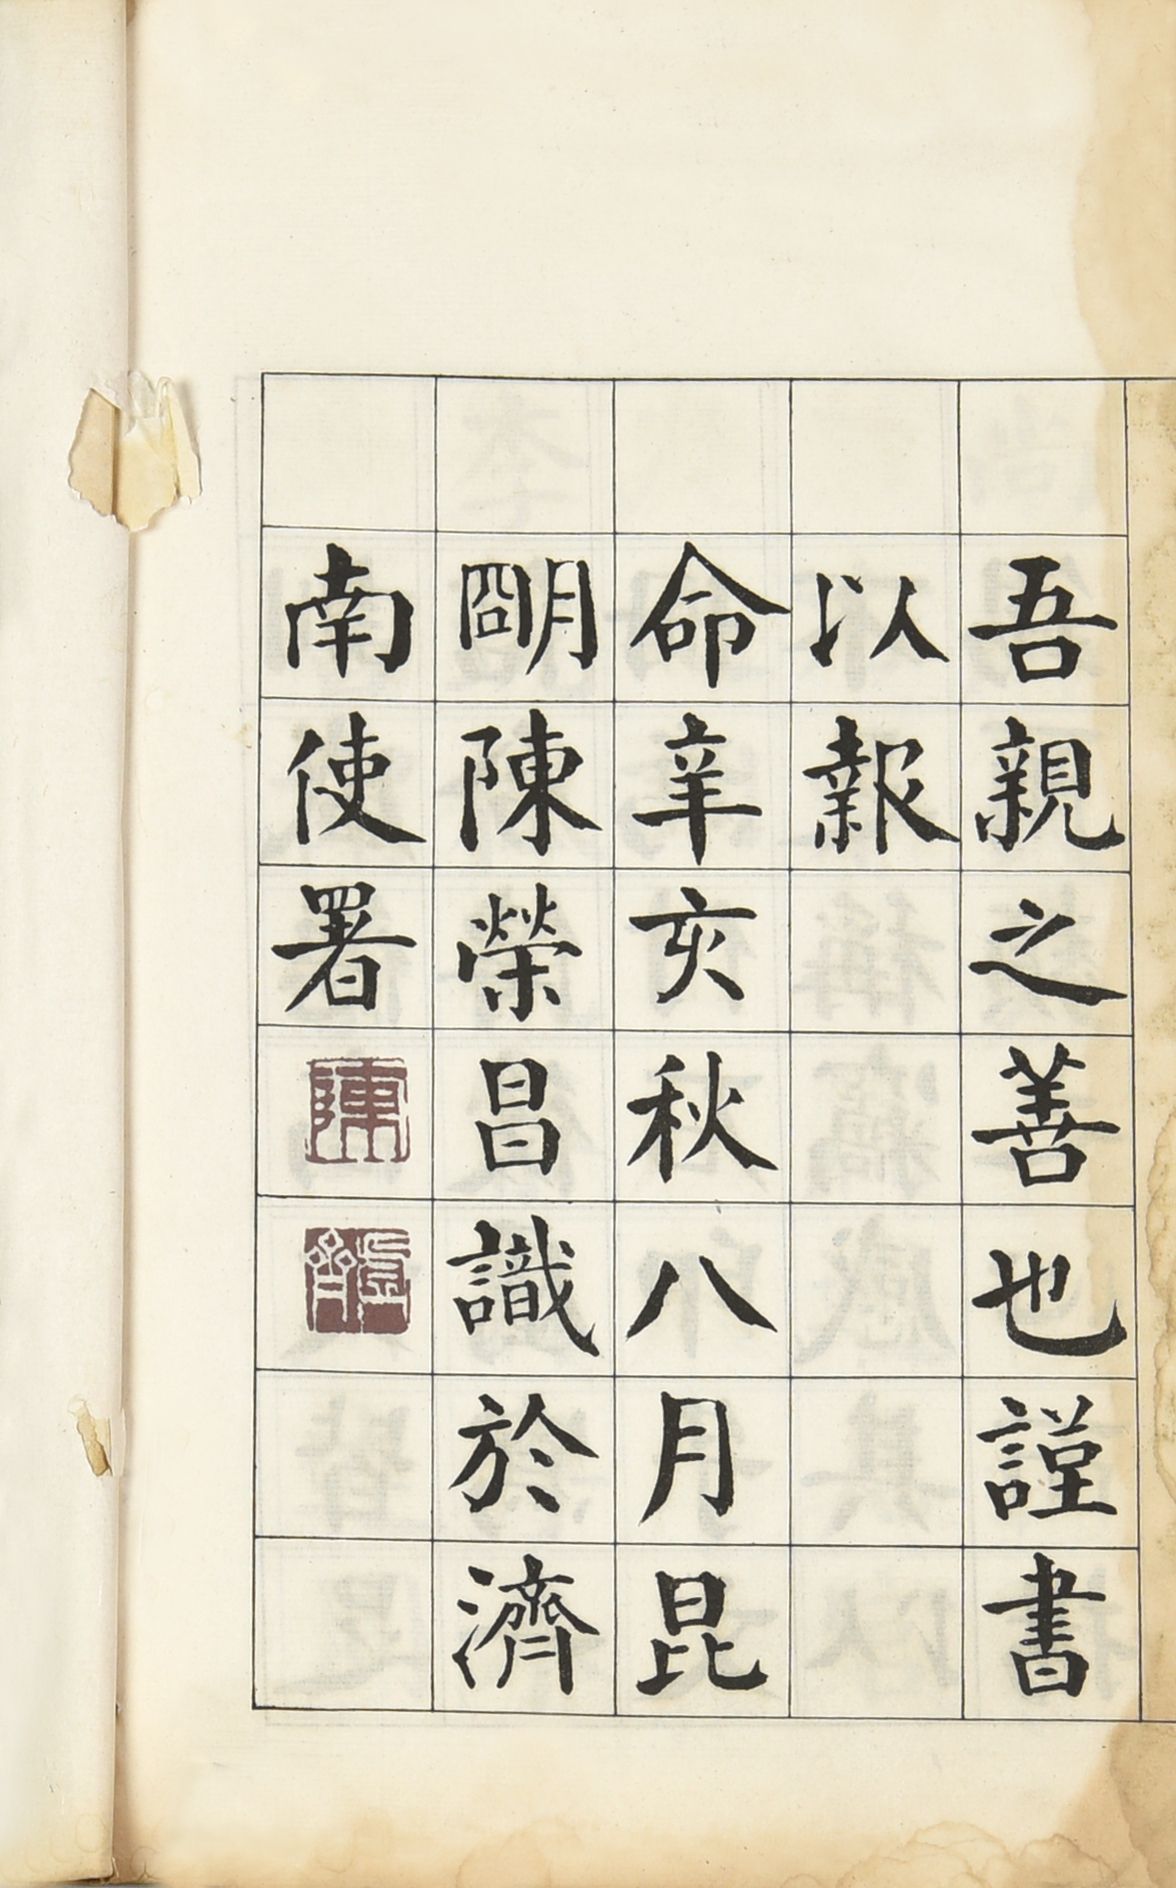 吾親之善也謹書
以報
命辛亥秋八月昆
朙陳榮昌識於濟
南使署
陳